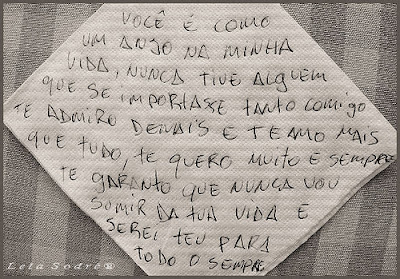 VOCÊ É COMO
UM ANJO NA MINHA
VIDA, NUNCA TIVE ALGUEM
QUE SE IMPORTASSE TANTO COMIGO
TE ADMIRO DEMAIS E TE AMO MAIS
QUE TUDO, TE QUERO MUITO E SEMPRE
TE GARANTO QUE NUNCA VOU
SUMIR DA TUA VIDA E
SEREI TEU PARA
TODO O SEMPRE
Lela Sodré